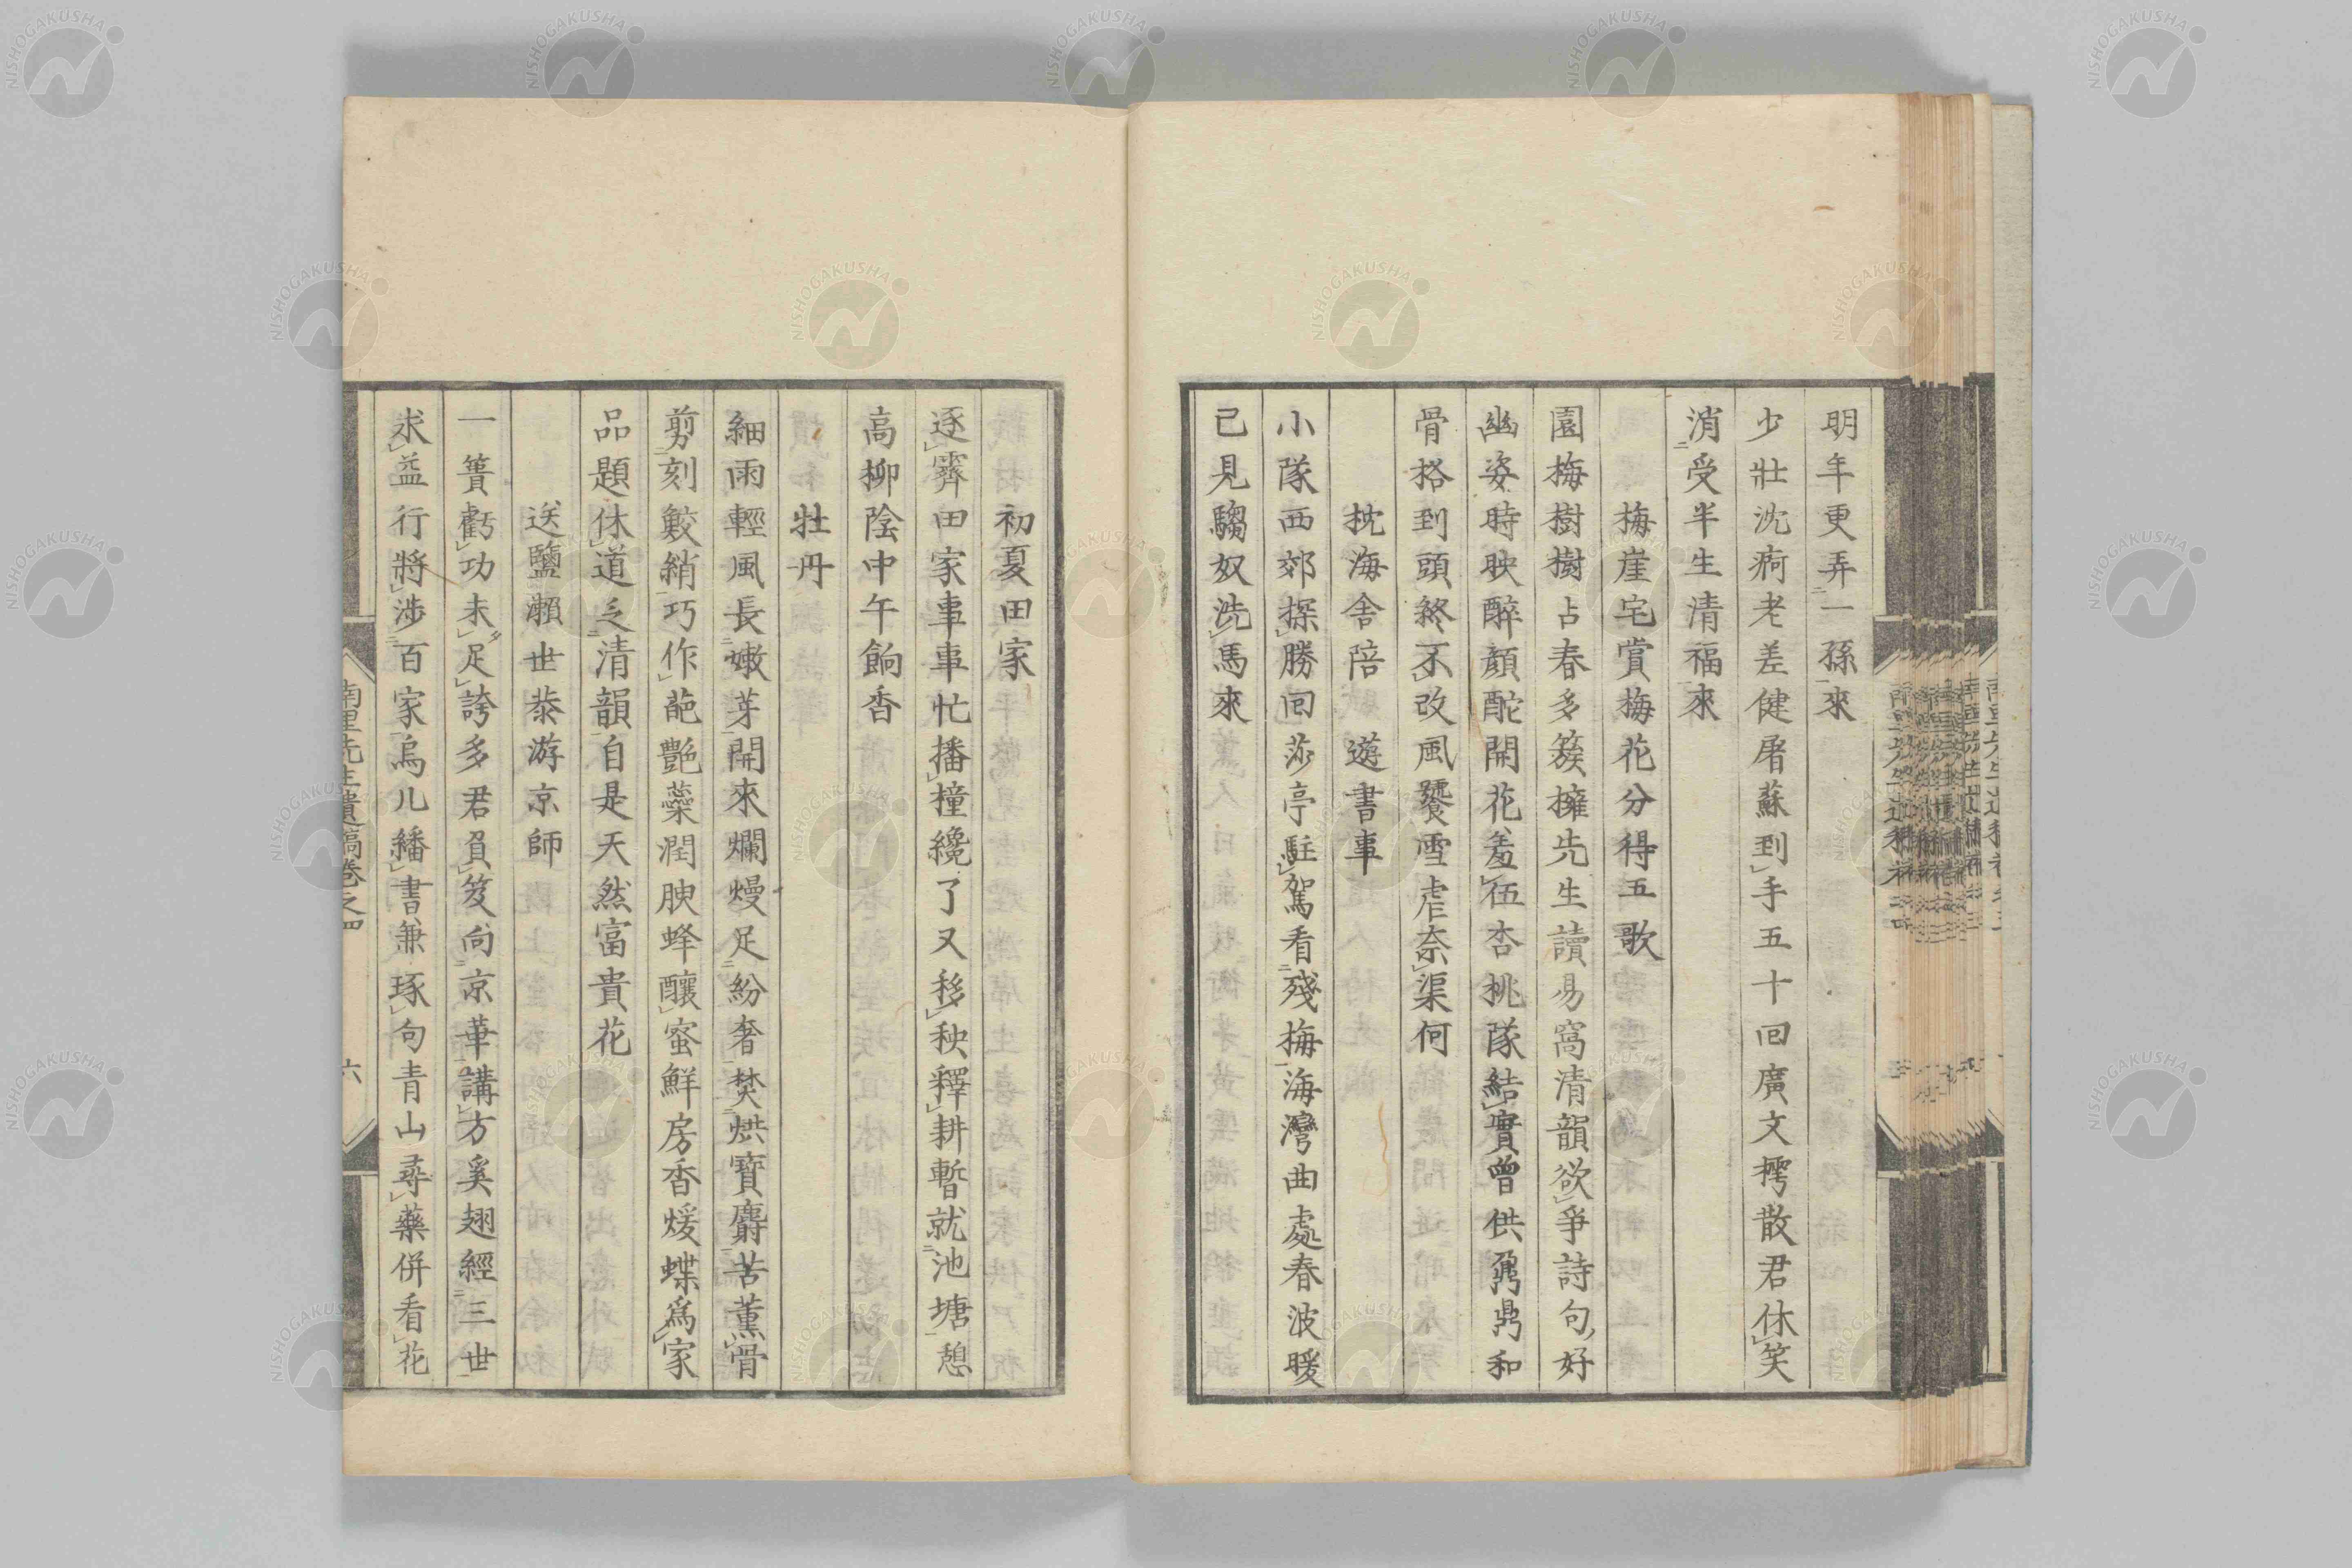 明年更弄一孫來
少壯沈痾老差健屠蘇到手五十回廣文樗散君休笑
消受半生清福來
梅崖宅賞梅花分得五歌
園梅樹樹占春多簇擁先生讀易窩清韻欲爭詩句好
幽姿時映醉顏酡開花羞伍杏桃隊結實曾供鼐鼎和
骨格到頭終不改風饕雪虐奈渠何
枕海舍陪 遊書事
小隊西郊探勝回莎亭駐駕看殘梅海灣曲處春波暖
已見騶奴洗馬來
初夏田家
逐霽田家事事忙播撞纔了又移秧釋耕暫就池塘憩
高柳陰中午餉香
牡丹
細雨輕風長嫩芽開來爛熳足紛奢焚烘寶麝苦薰骨
剪刻鮫綃巧作葩艷蘂潤腴蜂釀蜜鮮房香煖蝶爲家
品題休道乏清韻自是天然富貴花
送鹽瀨世泰游京師
一簣虧功未足誇多君負笈向京華講方奚翅經三世
求益行將涉百家烏几繙書兼琢句青山尋藥併看花
南里先生遺稿卷之四
六
NISHOGAKUSHA